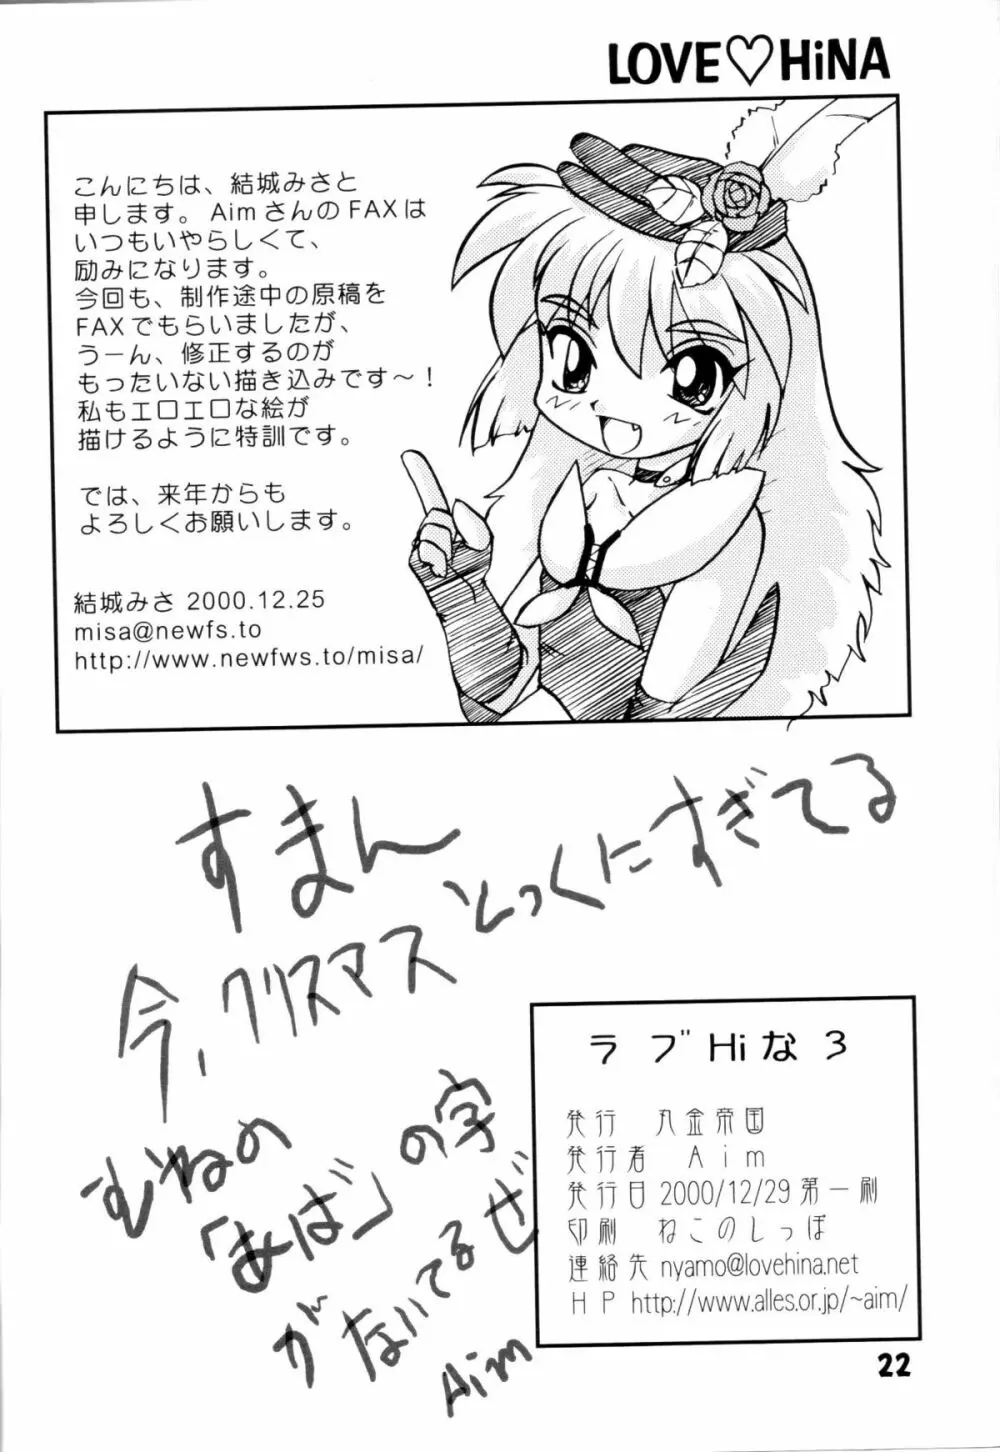 LOVE♡HiNA
こんにちは、結城みさと
申します。AimさんのFAXは
いつもいやらしくて、
励みになります。
今回も、制作途中の原稿を
FAXでもらいましたが、
うーん、修正するのが
もったいない描き込みです〜！
私もエロエロな絵が
描けるように特訓です。
では、来年からも
よろしくお願いします。
結城みさ 2000.12.25
misa@newfs.to
http://www.newfws.to/misa/
すまん
今、クリスマスとっくにすぎてる
むねの
「あば」の字
がないてるぜ
Aim
ラブHiな3
発行 丸金帝国
発行者 Aim
発行日 2000/12/29 第一刷
印刷 ねこのしっぽ
連絡先 nyamo@lovehina.net
HP http://www.alles.or.jp/~aim/
22